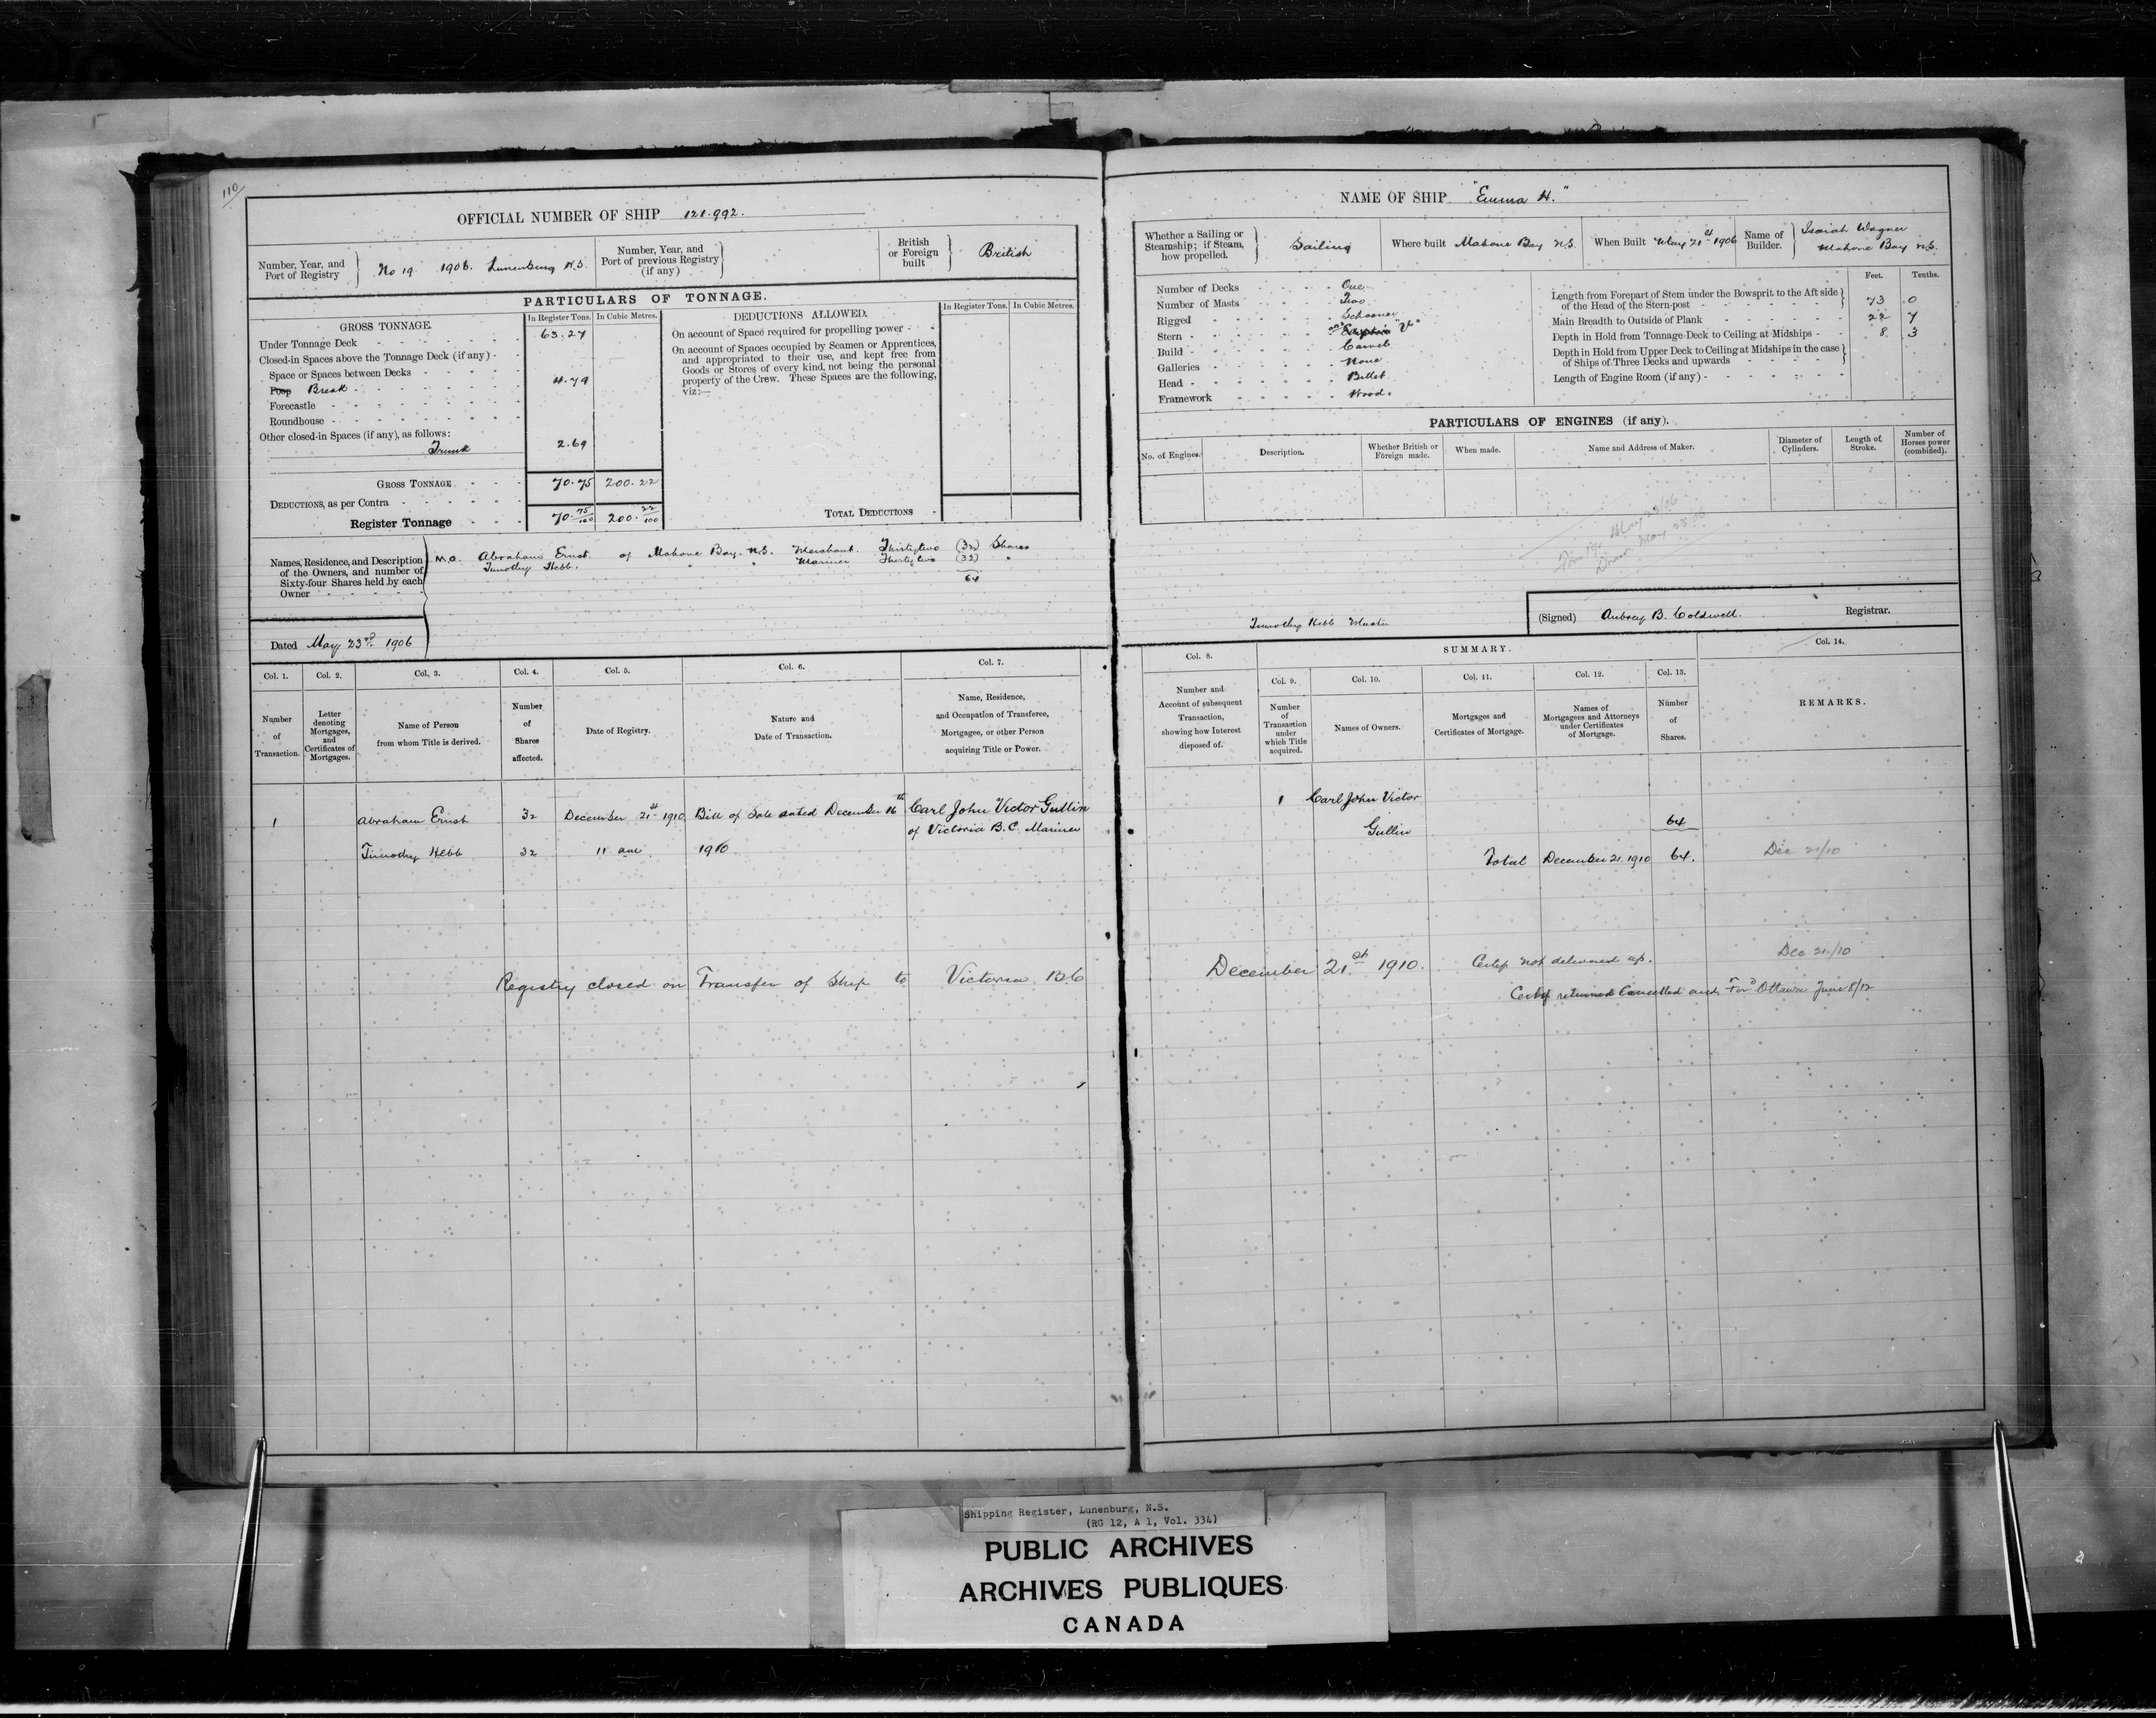 110
OFFICIAL NUMBER OF SHIP 121.992.
Number, Year, and Port of Registry
No 19. 1906. Lunenburg N.S.
Number, Year, and Port of previous Registry (if any)
British or Foreign built
British
PARTICULARS OF TONNAGE.
GROSS TONNAGE.
In Register Tons.
In Cubic Metres.
Under Tonnage Deck 63.27
Closed-in Spaces above the Tonnage Deck (if any)
Space or Spaces between Decks
Poop Break 4.79
Forecastle
Roundhouse
Other closed-in Spaces (if any), as follows:
Trunk 2.69
GROSS TONNAGE 70.75 200.22
DEDUCTIONS, as per Contra
Register Tonnage 70.75/100 200.22/100
DEDUCTIONS ALLOWED.
In Register Tons.
In Cubic Metres.
On account of Space required for propelling power
On account of Spaces occupied by Seamen or Apprentices,
and appropriated to their use, and kept free from
Goods or Stores of every kind, not being the personal
property of the Crew. These Spaces are the following,
viz:—
TOTAL DEDUCTIONS
Names, Residence, and Description
of the Owners, and number of
Sixty-four Shares held by each
Owner
M.O. Abraham Ernst. of Mahone Bay. N.S. Merchant. Thirtytwo (32) Shares
Timothy Hebb. " " Mariner Thirtytwo (32) "
64
Dated May 23rd. 1906
Col. 1.
Number of Transaction.
Col. 2.
Letter denoting Mortgages, and Certificates of Mortgages.
Col. 3.
Name of Person from whom Title is derived.
Col. 4.
Number of Shares affected.
Col. 5.
Date of Registry.
Col. 6.
Nature and Date of Transaction.
Col. 7.
Name, Residence, and Occupation of Transferee, Mortgagee, or other Person acquiring Title or Power.
1 Abraham Ernst 32 December 21st 1910 Bill of Sale dated December 16th Carl John Victor Gullin
of Victoria B.C. Mariner
Timothy Hebb 32 11 am. 1910
Registry closed on Transfer of Ship to Victoria B.C
NAME OF SHIP "Emma H."
Whether a Sailing or Steamship; if Steam, how propelled.
Sailing
Where built Mahone Bay N.S.
When Built May 21st 1906
Name of Builder.
Isaiah Wagner
Mahone Bay N.S.
Number of Decks One
Number of Masts Two
Rigged Schooner
Stern
Build Carvel
Galleries None
Head Billet
Framework Wood.
Feet. Tenths.
Length from Forepart of Stem under the Bowsprit to the Aft side
of the Head of the Stern-post 73 .0
Main Breadth to Outside of Plank 22 7
Depth in Hold from Tonnage-Deck to Ceiling at Midships 8. 3
Depth in Hold from Upper Deck to Ceiling at Midships in the case
of Ships of Three Decks and upwards
Length of Engine Room (if any)
PARTICULARS OF ENGINES (if any).
No. of Engines.
Description.
Whether British or Foreign made.
When made.
Name and Address of Maker.
Diameter of Cylinders.
Length of Stroke.
Number of Horses power (combined).
May 23/06
May 23/06
Timothy Hebb Master
(Signed) Aubrey B. Coldwell. Registrar.
Col. 8.
Number and Account of subsequent Transaction, showing how Interest disposed of.
SUMMARY.
Col. 9.
Number of Transaction under which Title acquired.
Col. 10.
Names of Owners.
Col. 11.
Mortgages and Certificates of Mortgage.
Col. 12.
Names of Mortgagees and Attorneys under Certificates of Mortgage.
Col. 13.
Number of Shares.
Col. 14.
REMARKS.
1 Carl John Victor
Gullin 64
Total December 21. 1910 64. Dec 21/10
December 21st 1910. Certif not delivered up. Dec 21/10
Certif returned Cancelled and Ford Ottawa June 8/12
Shipping Register, Lunenburg, N.S.
(RG 12, A 1, Vol. 334)
PUBLIC ARCHIVES
ARCHIVES PUBLIQUES
CANADA